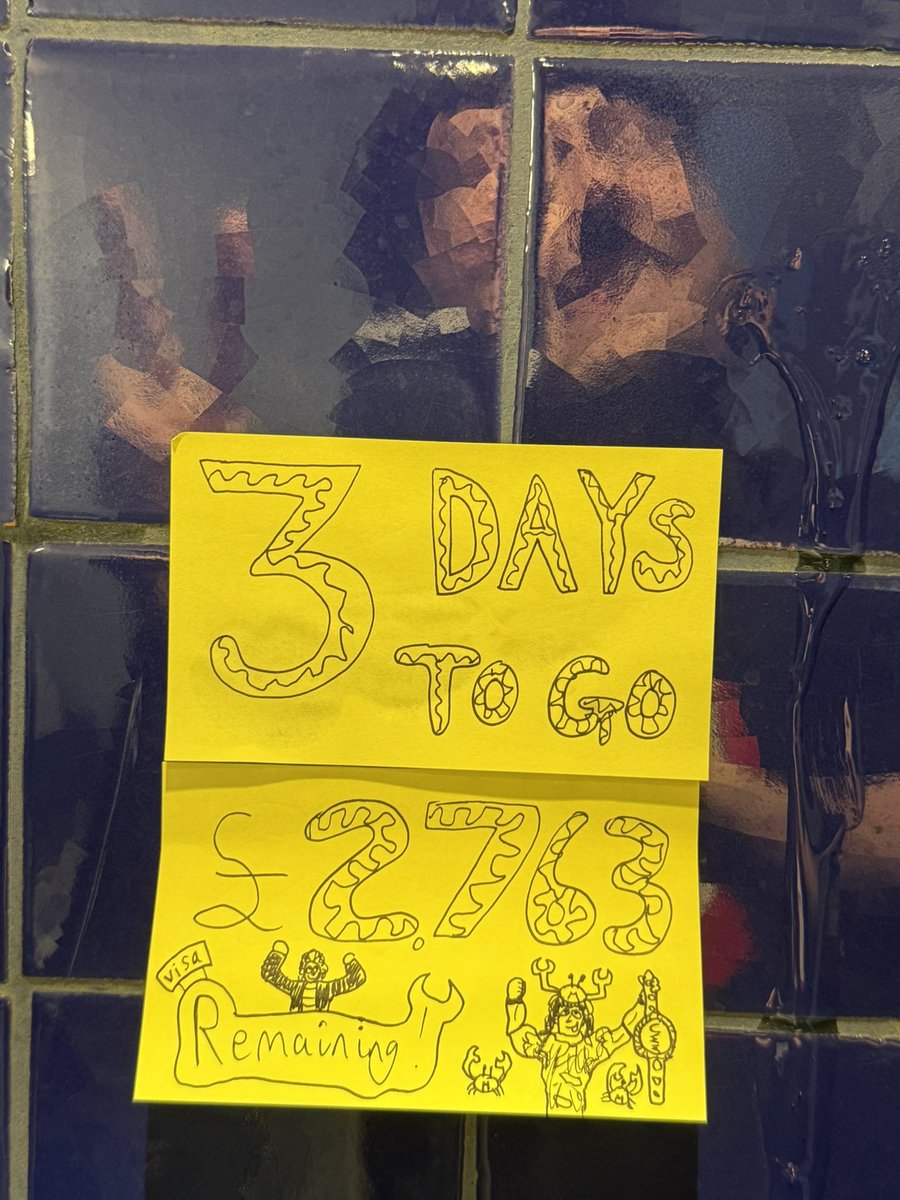 3 DAYS
TO GO
£2,763
visa
Remaining